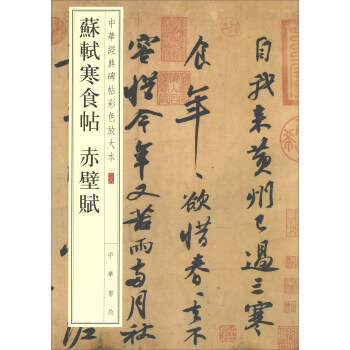 中華經典碑帖彩色放大本
蘇軾寒食帖 赤壁賦
中華書局
自我來黃州已過三寒
食年〻欲惜春〻去不
容惜今年又苦雨兩月秋